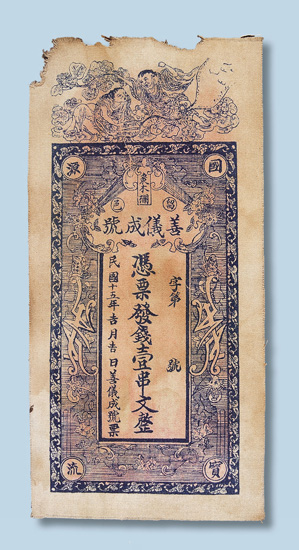 國
源
邑
善儀成號
字第　號
憑票發錢壹串文整
民國十五年吉月吉日善儀成號票
寶
流